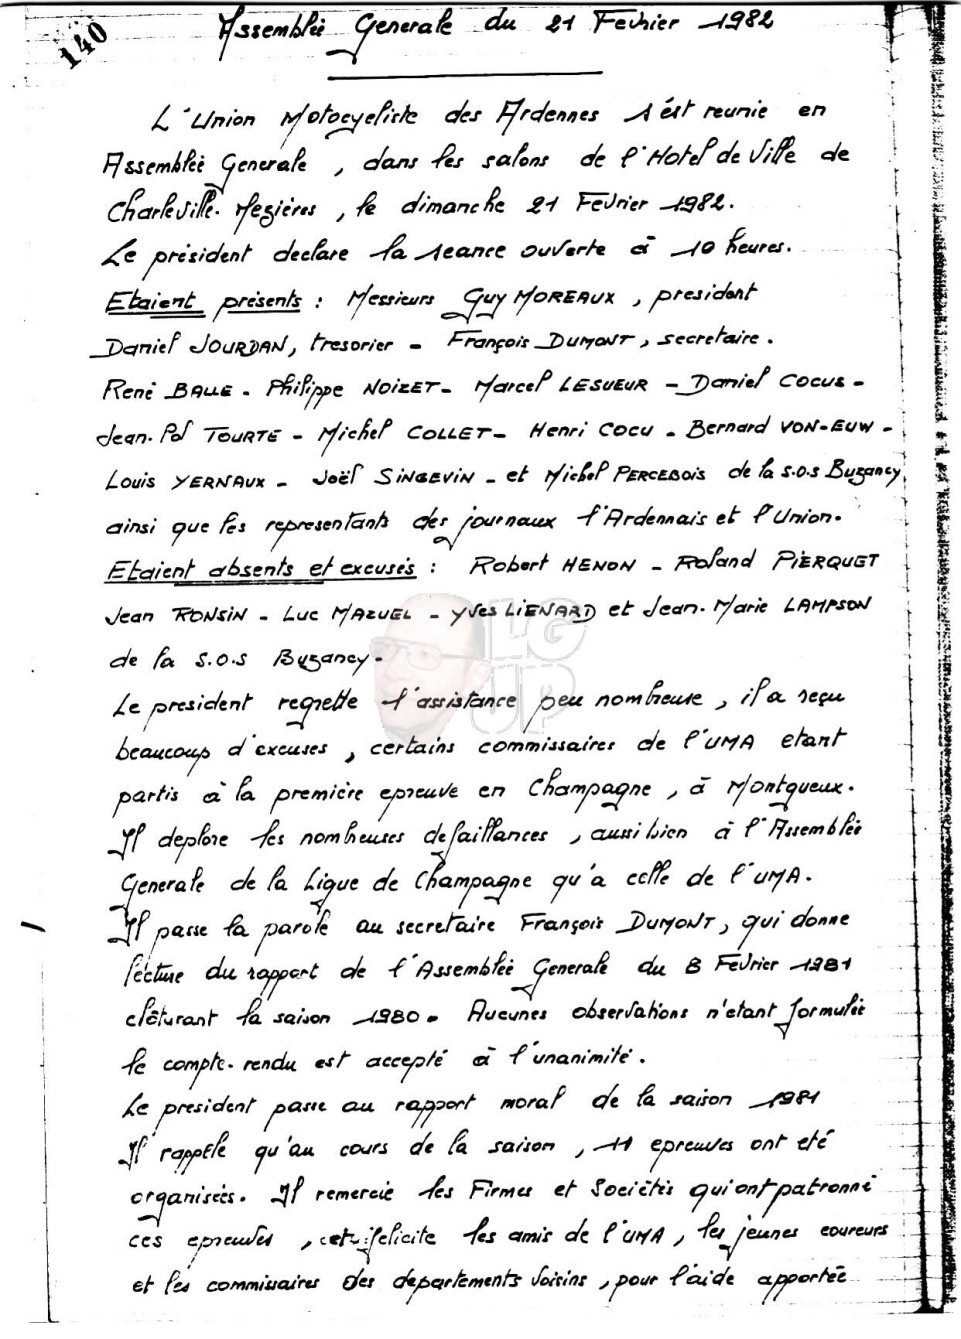 140
Assembleé Generale du 21 Fevrier 1982
L'Union Motocycliste des Ardennes s'ést reunie en
Assembleé Generale, dans les salons de l'Hotel de Ville de
Charleville-Mezières, le dimanche 21 Fevrier 1982.
Le président declare la seance ouverte à 10 heures.
Etaient présents : Messieurs Guy MOREAUX, president
Daniel JOURDAN, tresorier - François DUMONT, secretaire.
René BALLE - Philippe NOIZET - Marcel LESUEUR - Daniel COCUS -
Jean-Pol TOURTE - Michel COLLET - Henri COCU - Bernard VON-EUW -
Louis YERNAUX - Joël SINGEVIN - et Michel PERCEBOIS de la S.O.S Buzancy
ainsi que les representants des journaux l'Ardennais et l'Union.
Etaient absents et excusés : Robert HENON - Roland PIERQUET
Jean RONSIN - Luc MAZUEL - Yves LIENARD et Jean-Marie LAMPSON
de la S.O.S Buzancy -
LG
UP
Le president regrette l'assistance peu nombreuse, il a reçu
beaucoup d'excuses, certains commissaires de l'UMA etant
partis à la première epreuve en Champagne, à Montgueux.
Il deplore les nombreuses defaillances, aussi bien à l'Assembleé
Generale de la Ligue de Champagne qu'a celle de l'UMA.
Il passe la parole au secretaire François DUMONT, qui donne
lecture du rapport de l'Assembleé Generale du 8 Fevrier 1981
clôturant la saison 1980. Aucunes observations n'etant formulée
le compte-rendu est accepté à l'unanimité.
Le president passe au rapport moral de la saison 1981
Il rappèle qu'au cours de la saison, 11 epreuves ont eté
organisées. Il remercie les Firmes et Sociétés qui ont patronné
ces epreuves, et felicite les amis de l'UMA, les jeunes coureurs
et les commissaires des departements voisins, pour l'aide apporteé